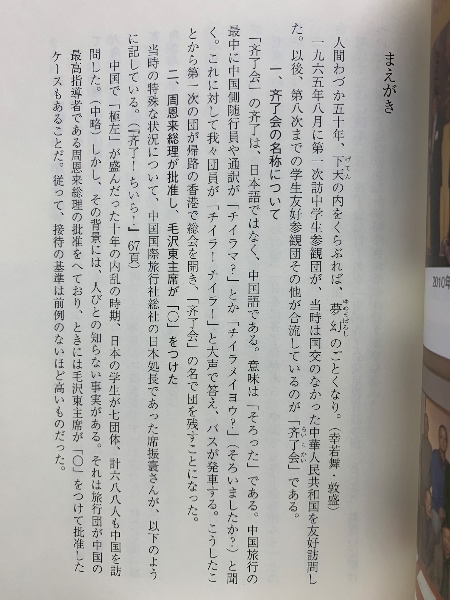 まえがき
人間わづか五十年、下天の内をくらぶれば、夢幻のごとくなり。（幸若舞・敦盛）
一九六五年八月に第一次訪中学生参観団が、当時は国交のなかった中華人民共和国を友好訪問し
た。以後、第八次までの学生友好参観団その他が合流しているのが「斉了会」である。
一、斉了会の名称について
「斉了会」の斉了は、日本語ではなく、中国語である。意味は「そろった」である。中国旅行の
最中に中国側随行員や通訳が「チイラマ？」とか「チイラメイヨウ？」（そろいましたか？）と聞
く。これに対して我々団員が「チイラ！チイラ！」と大声で答え、バスが発車する。こうしたこ
とから第一次の団が帰路の香港で総会を開き、「斉了会」の名で団を残すことになった。
二、周恩来総理が批准し、毛沢東主席が「○」をつけた
当時の特殊な状況について、中国国際旅行社総社の日本処長であった席振寰さんが、以下のよう
に記している。（『斉了！ちいら！』67頁）
中国で「極左」が盛んだった十年の内乱の時期、日本の学生が七団体、計六八八人も中国を訪
問した。（中略）しかし、その背景には、人びとの知らない事実がある。それは旅行団が中国の
最高指導者である周恩来総理の批准をへており、ときには毛沢東主席が「○」をつけて批准した
ケースもあることだ。従って、接待の基準は前例のないほど高いものだった。
2010年